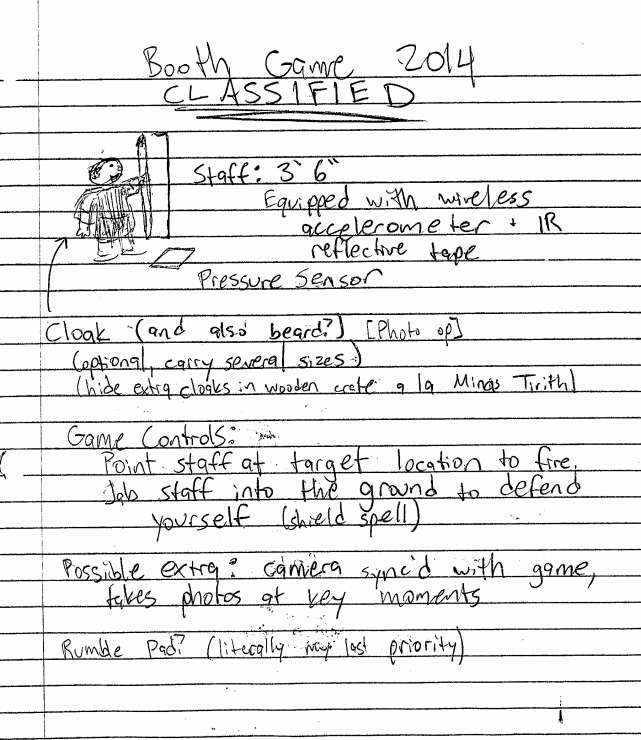 Booth Game 2014
CLASSIFIED
Staff: 3' 6"
Equipped with wireless
accelerometer + IR
reflective tape
Pressure Sensor
Cloak (and also beard?) [Photo op]
(optional, carry several sizes)
(hide extra cloaks in wooden crate a la Minas Tirith)
Game Controls:
Point staff at target location to fire,
Jab staff into the ground to defend
yourself (shield spell)
Possible extra: camera sync'd with game,
takes photos at key moments
Rumble Pad? (literally last priority)